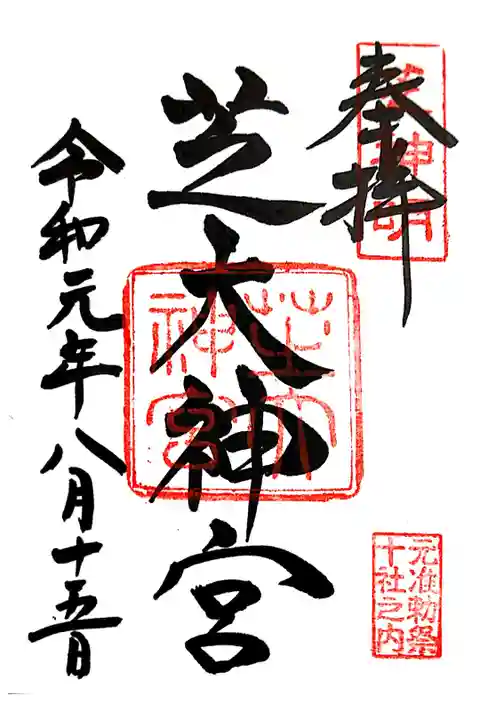 奉拝
芝大神宮
芝大
神宮
元准勅祭
十社之内
令和元年八月十五日